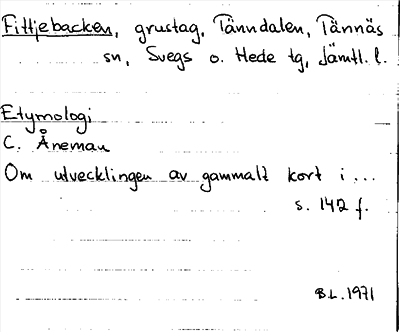 Fittjebacken, grustag, Tänndalen, Tännäs
sn, Svegs o. Hede tg, Jämtl. l.
Etymologi
C. Åneman
Om utvecklingen av gammalt kort i...
s. 142 f.
B.L. 1971